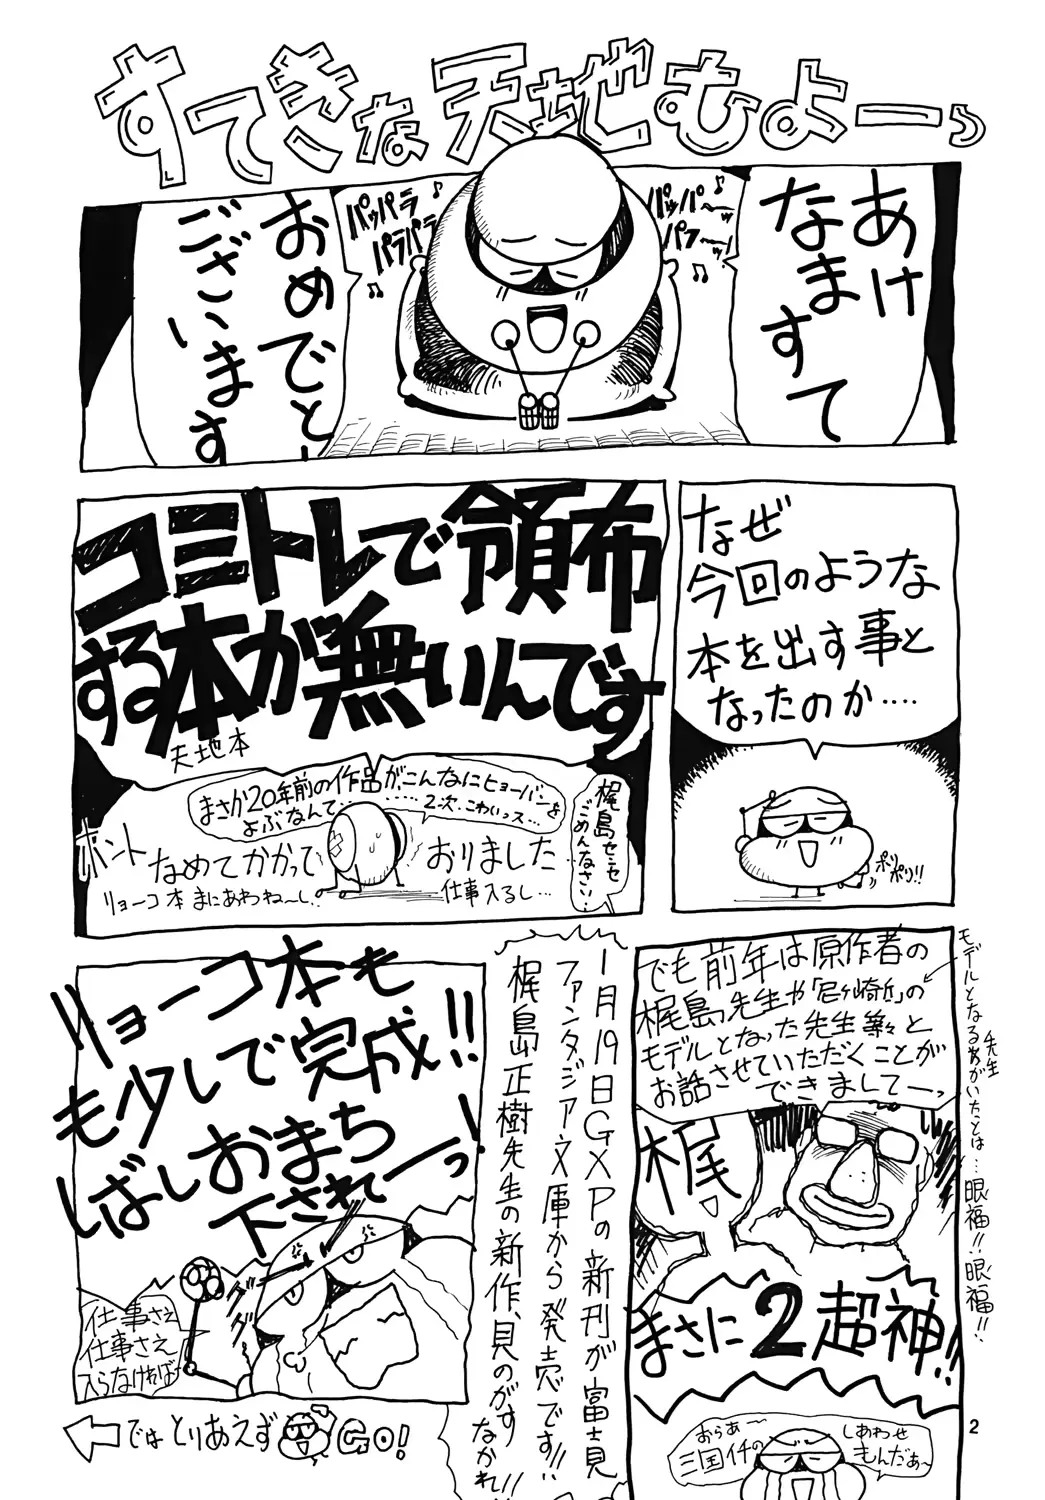 すてきな天地むよーっ
あけ
なます
て
おめでとー
ございます
パッパ〜ッ
パフ〜ッ!
パッパラ
パラパラ
なぜ
今回のような
本を出す事と
なったのか‥‥
ポリ
ポリ!!
コミトレで領布
する本が無いんです
天地本
まさか20年前の作品が、こんなにヒョーバンを
よぶなんて‥‥‥‥‥2次、こわいっス‥
梶島センセ
ごめんなさい‥
ホント
なめてかかって
おりました
リョーコ本まにあわね〜し‥
仕事入るし‥
でも前年は原作者の
梶島先生や「尼ヶ崎近」の
モデルとなった先生等々と
お話させていただくことが
できましてーっ
モデルとなる
先生
眼福!!眼福!!‥
梶
まさに2超神!!
おらあ〜
三国イチの
しあわせ
もんだぁ〜
1月19日GXPの新刊が富士見
ファンタジア文庫から発売です!!
梶島正樹先生の新作、見のがす
なかれ!!
リョーコ本も
も少しで完成!!
しばしおまち
下されーっ!
仕事さえ
仕事さえ
入らなければ
ではとりあえず
GO!
2